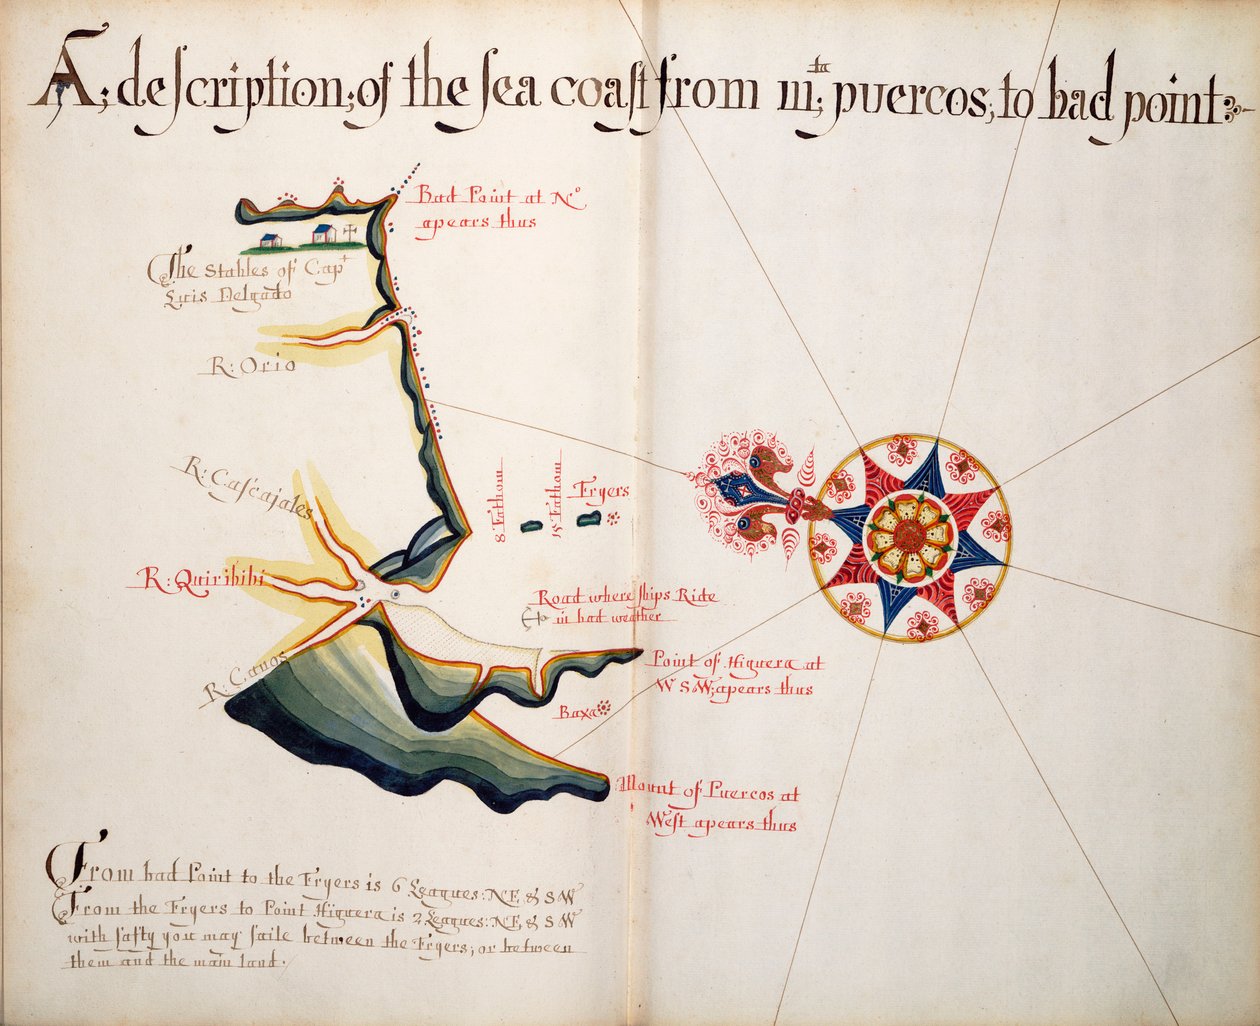 A; description; of the sea coast from mta; puercos; to bad point:
Bad Point at No
apears thus
The Stables of Capt
Luis Delgado
R: Orio
R: Cascajales
8 Fathom
15 Fathom
Fryers
R: Quiribibi
Road where ships Ride
in bad weather
R: Canos
Point of Higuera at
W S W; apears thus
Baxa
Mount of Puercos at
West apears thus
From bad Point to the Fryers is 6 Leagues: NE, & SW
From the Fryers to Point Higuera is 2 Leagues: NE, & SW
with safty you may saile between the Fryers; or between
them and the main land.